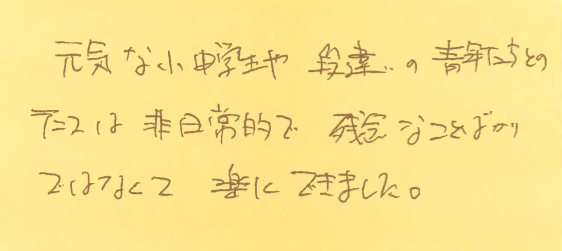 元気な小中学生や 段違いの青年たちとの
テニスは非日常的で 残念なことばかり
ではなくて 楽にできました。